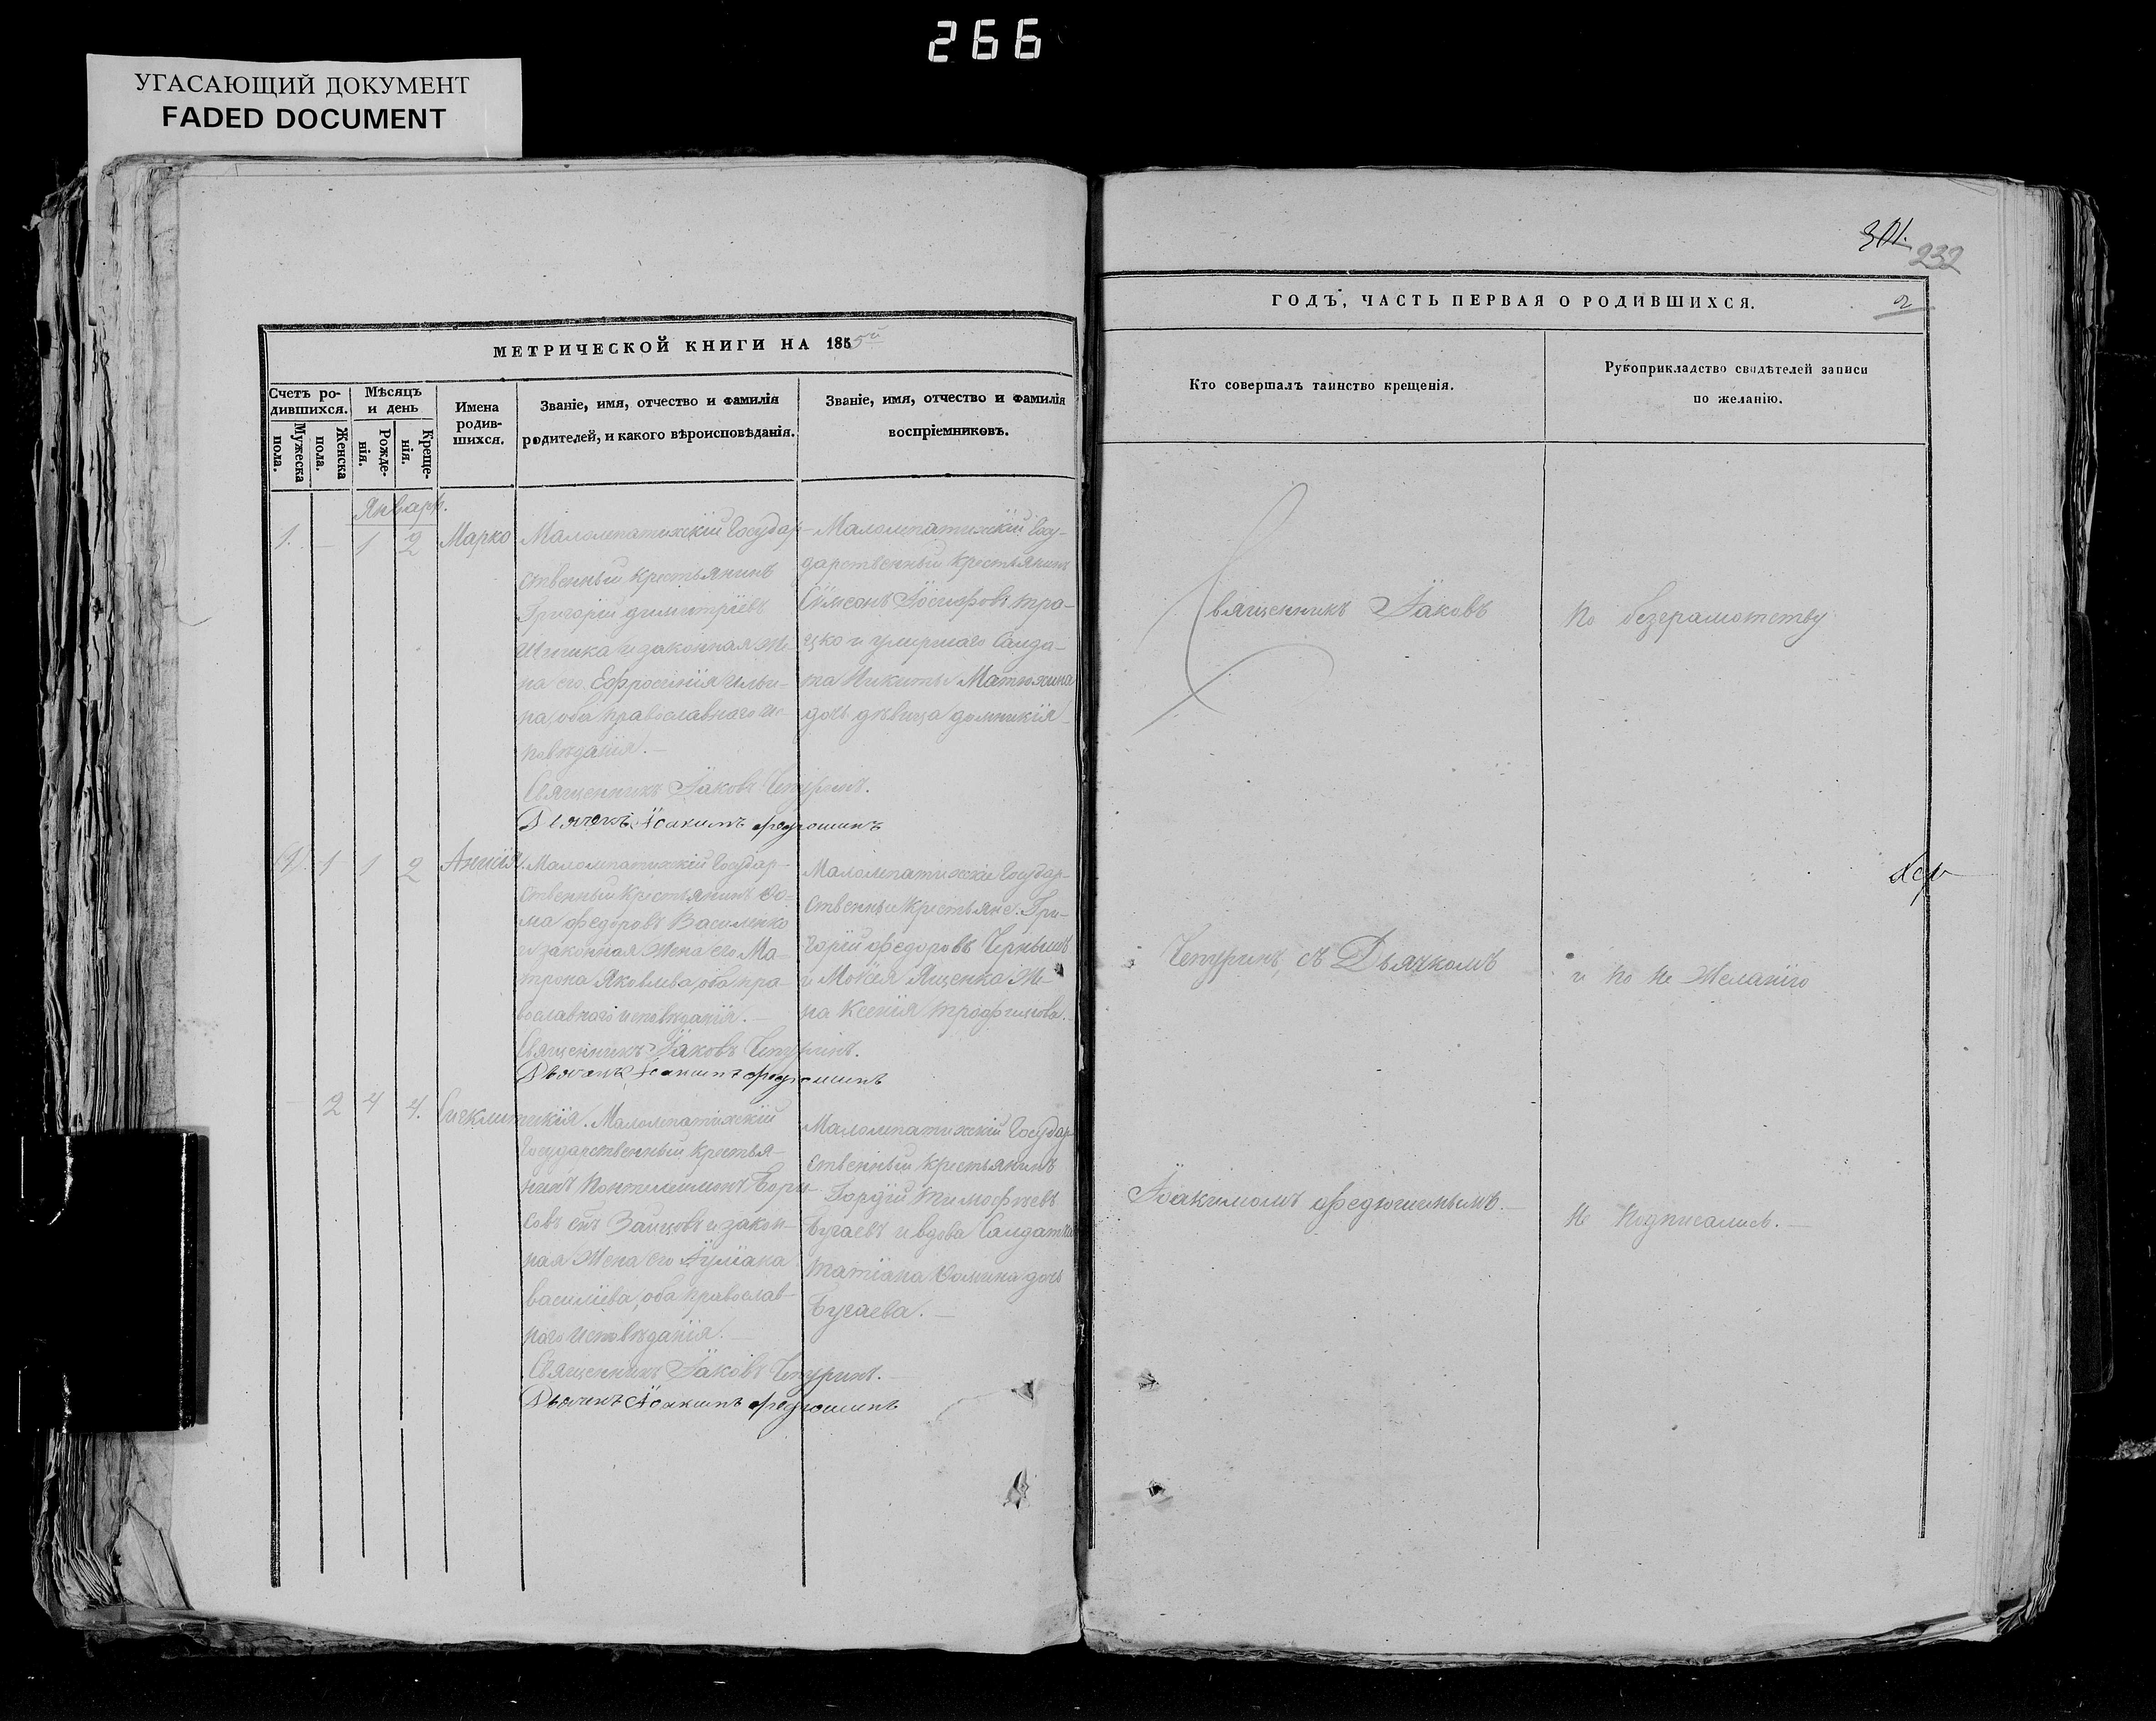 266
УГАСАЮЩИЙ ДОКУМЕНТ
FADED DOCUMENT
МЕТРИЧЕСКОЙ КНИГИ НА 1855й
Счетъ ро-
дившихся.
Мужеска
пола.
Женска
пола.
Мѣсяцъ
и день
Рожде-
нія.
Креще-
нія.
Имена
родив-
шихся.
Званіе, имя, отчество и фамилія
родителей, и какого вѣроисповѣданія.
Званіе, имя, отчество и фамилія
воспріемниковъ.
Январь.
1. – 1 2 Марко
Малолепатихскій Государ-
ственный крестьянинъ
Григорій Димитріевъ
и законная Же-
на его Ефросинія Ильи-
на, оба православнаго ис-
повѣданія.–
Священникъ Іаковъ Чепуринъ.
Дьячекъ Іоакимъ Федюшинъ
Малолепатихскій Госу-
дарственный крестьянинъ
Сѵмеонъ Іосифовъ
и умершаго Салда-
та Никиты Матюхина
дочь дѣвица Домникія–
1 1 2
Малолепатихскій Государ-
ственный крестьянинъ Ѳо-
ма Федоровъ Василенко
и законная Жена его Ма-
трона Яковлева, оба пра-
вославнаго исповѣданія.–
Священникъ Іаковъ Чепуринъ.
Дьячекъ Іоакимъ Федюшинъ
Малолепатихскіе Государ-
ственные крестьяне. Гри-
горій Федоровъ Чернышъ
и Мокея Ященка Же-
на Ксенія Трофимова.
– 2 4 4. Синклитикія.
Малолепатихскій
Государственный крестья-
нинъ Понтелеимонъ Бори-
совъ сынъ Заицовъ и закон-
ная Жена его Іуліана
Василіева, оба православ-
наго исповѣданія.–
Священникъ Іаковъ Чепуринъ.–
Дьячекъ Іоакимъ Федюшинъ
Малолепатихскій Государ-
ственный крестьянинъ
Гордій Тимофѣевъ
Бугаевъ и вдова Салдатка
Татіана Ѳомина дочь
Бугаева.–
301.
232
ГОДЪ, ЧАСТЬ ПЕРВАЯ О РОДИВШИХСЯ.
2
Кто совершалъ таинство крещенія.
Рукоприкладство свидѣтелей записи
по желанію.
Священникъ Іаковъ
Чепуринъ, съ Дьячкомъ
Іоакимомъ Федюшинымъ.–
По безграмотству
и по не Желанію
не подписались.–